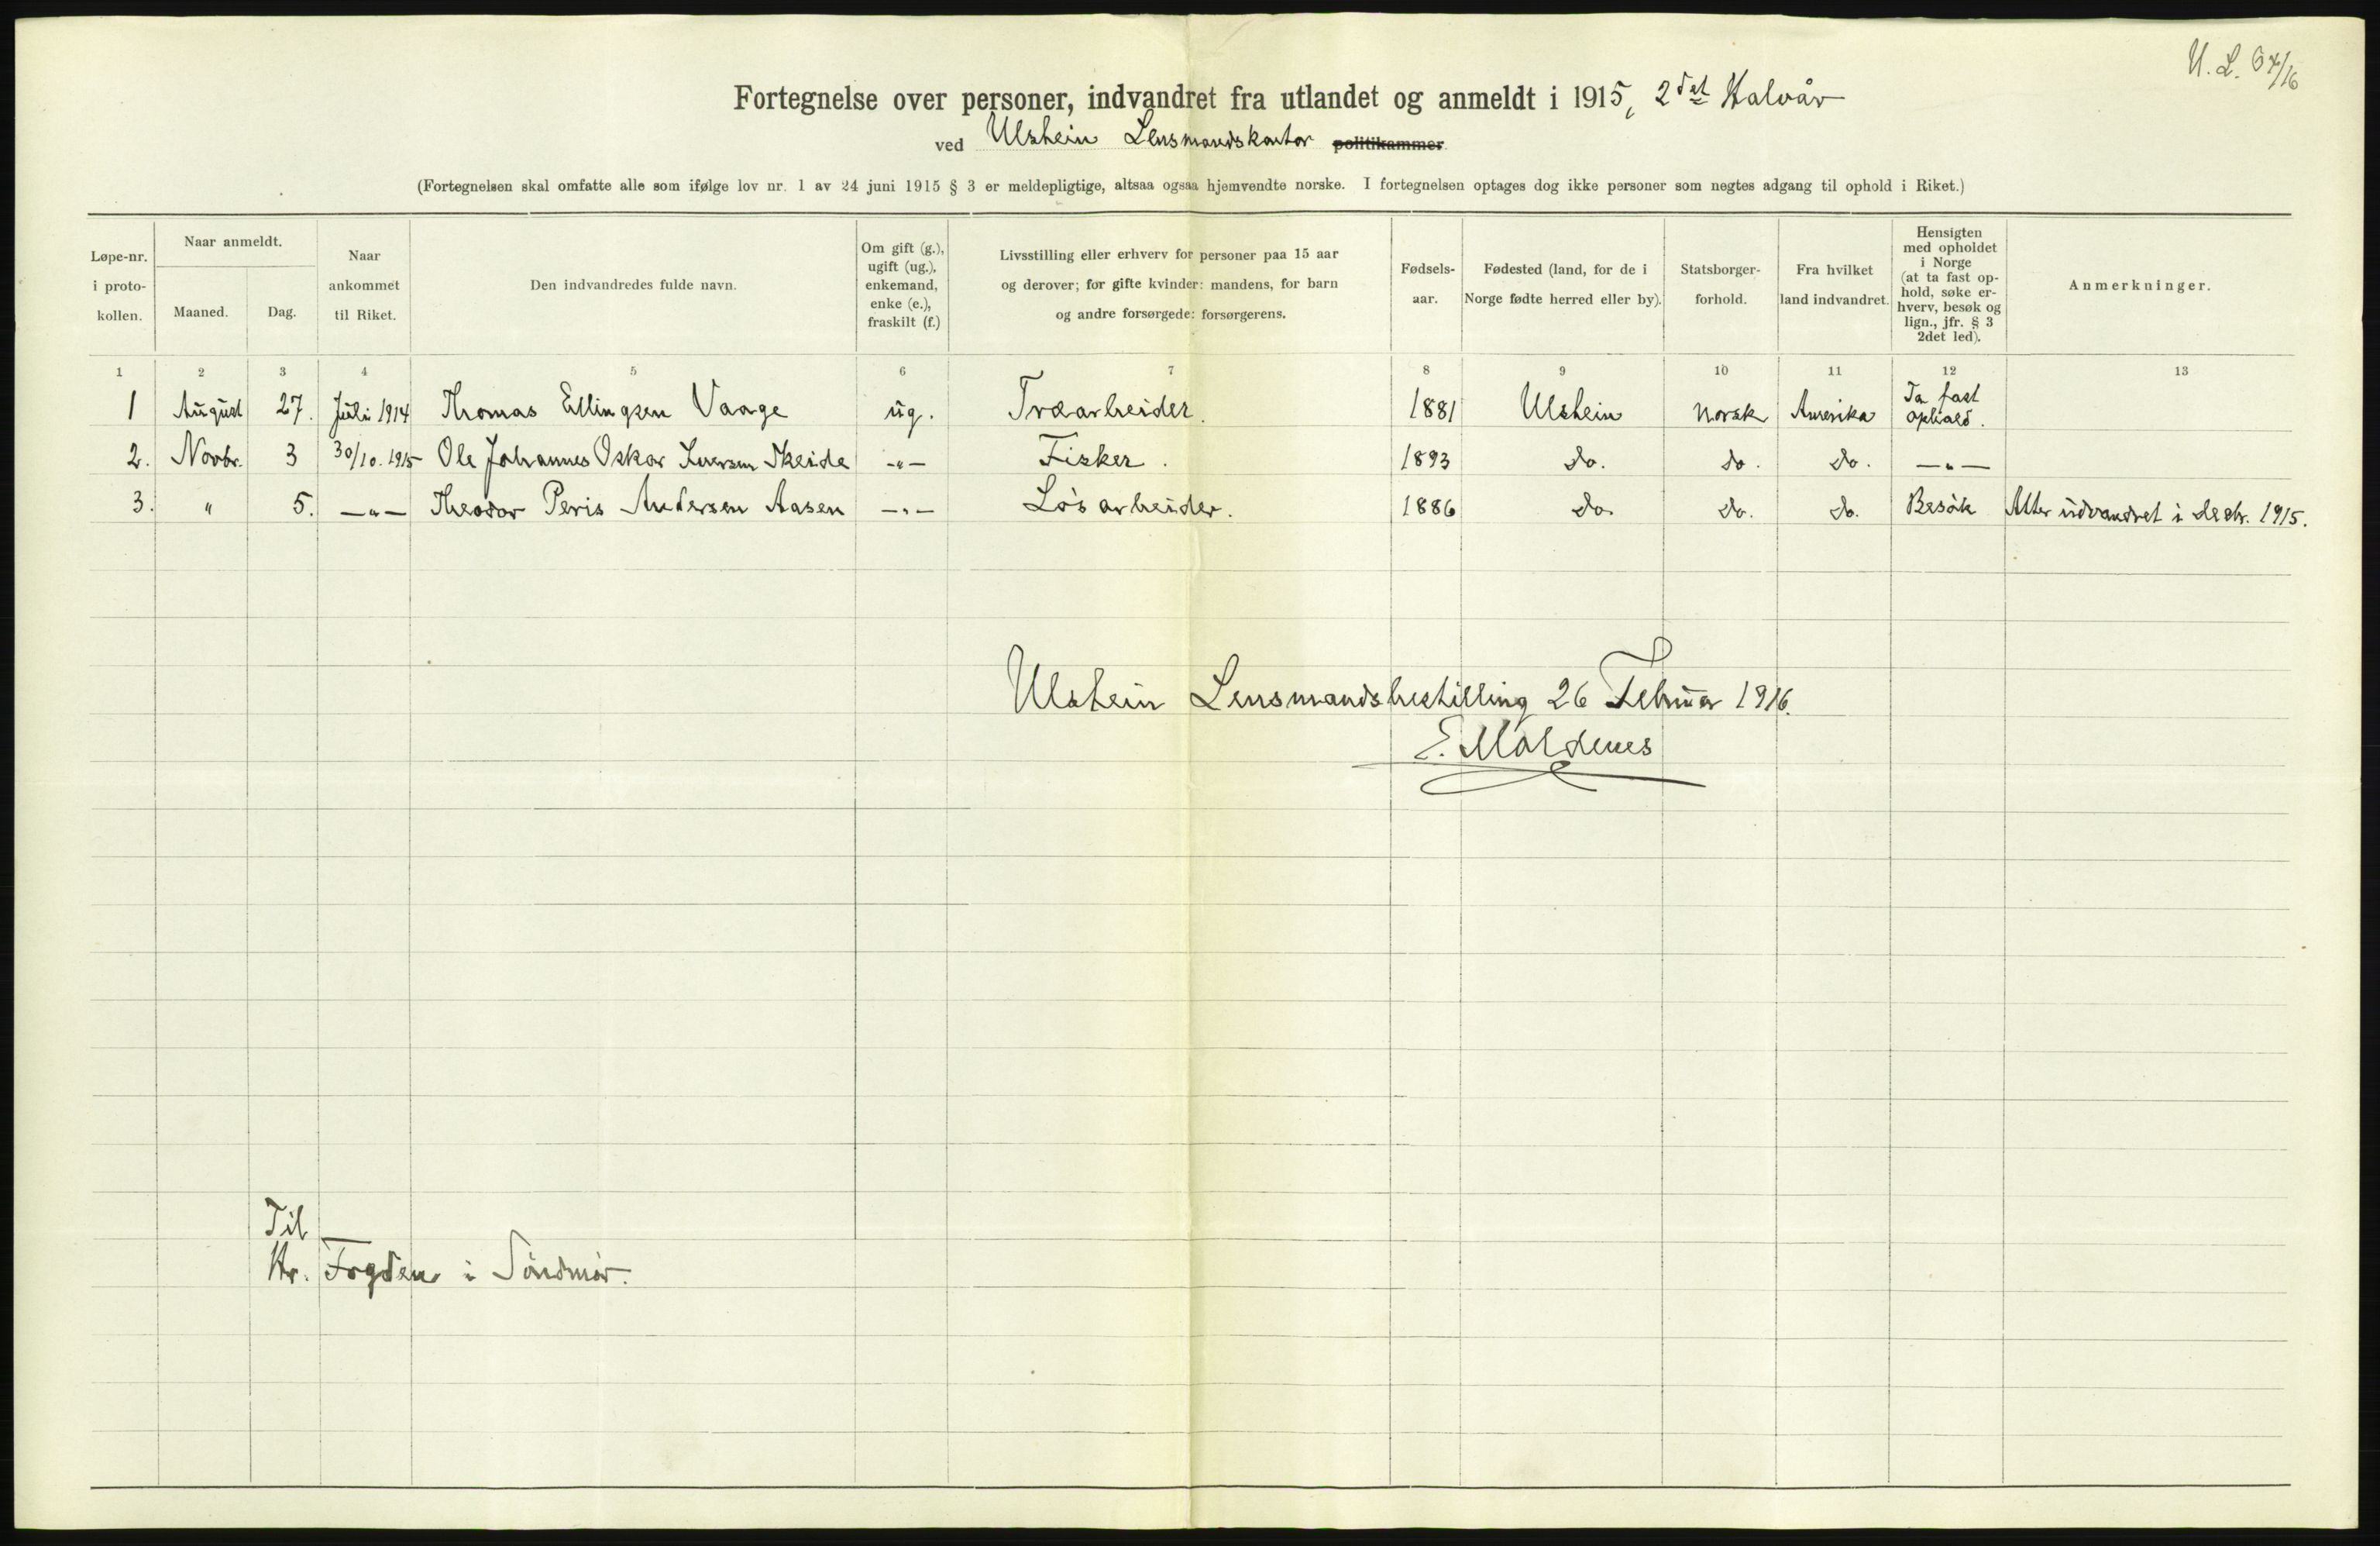 U. L. 67/16
Fortegnelse over personer, indvandret fra utlandet og anmeldt i 1915, 2det Halvår
ved Ulstein Lensmandskontor politikammer
(Fortegnelsen skal omfatte alle som ifølge lov nr. 1 av 24 juni 1915 § 3 er meldepligtige, altsaa ogsaa hjemvendte norske. I fortegnelsen optages dog ikke personer som negtes adgang til ophold i Riket.)
Løpe-nr. i proto- kollen.
Naar anmeldt.
Maaned.
Dag.
Naar ankommet til Riket.
Den indvandredes fulde navn.
Om gift (g.), ugift (ug.), enkemand, enke (e.), fraskilt (f.)
Livsstilling eller erhverv for personer paa 15 aar og derover; for gifte kvinder: mandens, for barn og andre forsørgede: forsørgerens.
Fødsels- aar.
Fødested (land, for de i Norge fødte herred eller by).
Statsborger- forhold.
Fra hvilket land indvandret.
Hensigten med opholdet i Norge (at ta fast op- hold, søke er- hverv, besøk og lign., jfr. § 3 2det led).
Anmerkninger.
1 2 3 4 5 6 7 8 9 10 11 12 13
1 August 27. Juli 1914 Thomas Ellingsen Vaage ug. Træarbeider. 1881 Ulstein norsk Amerika Ta fast ophold.
2. Novbr. 3 30/10. 1915 Ole Johannes Oskar Iversen Skeide -"- Fisker. 1893 do. do. do. -"-
3. " 5. -"- Theodor Peris Andersen Aasen -"- Løsarbeider. 1886 do. do. do. Besök Atter udvandret i decbr. 1915.
Ulstein Lensmandsbestilling 26 Februar 1916.
E. Moldenes
Til
Hr. Fogden i Söndmör.